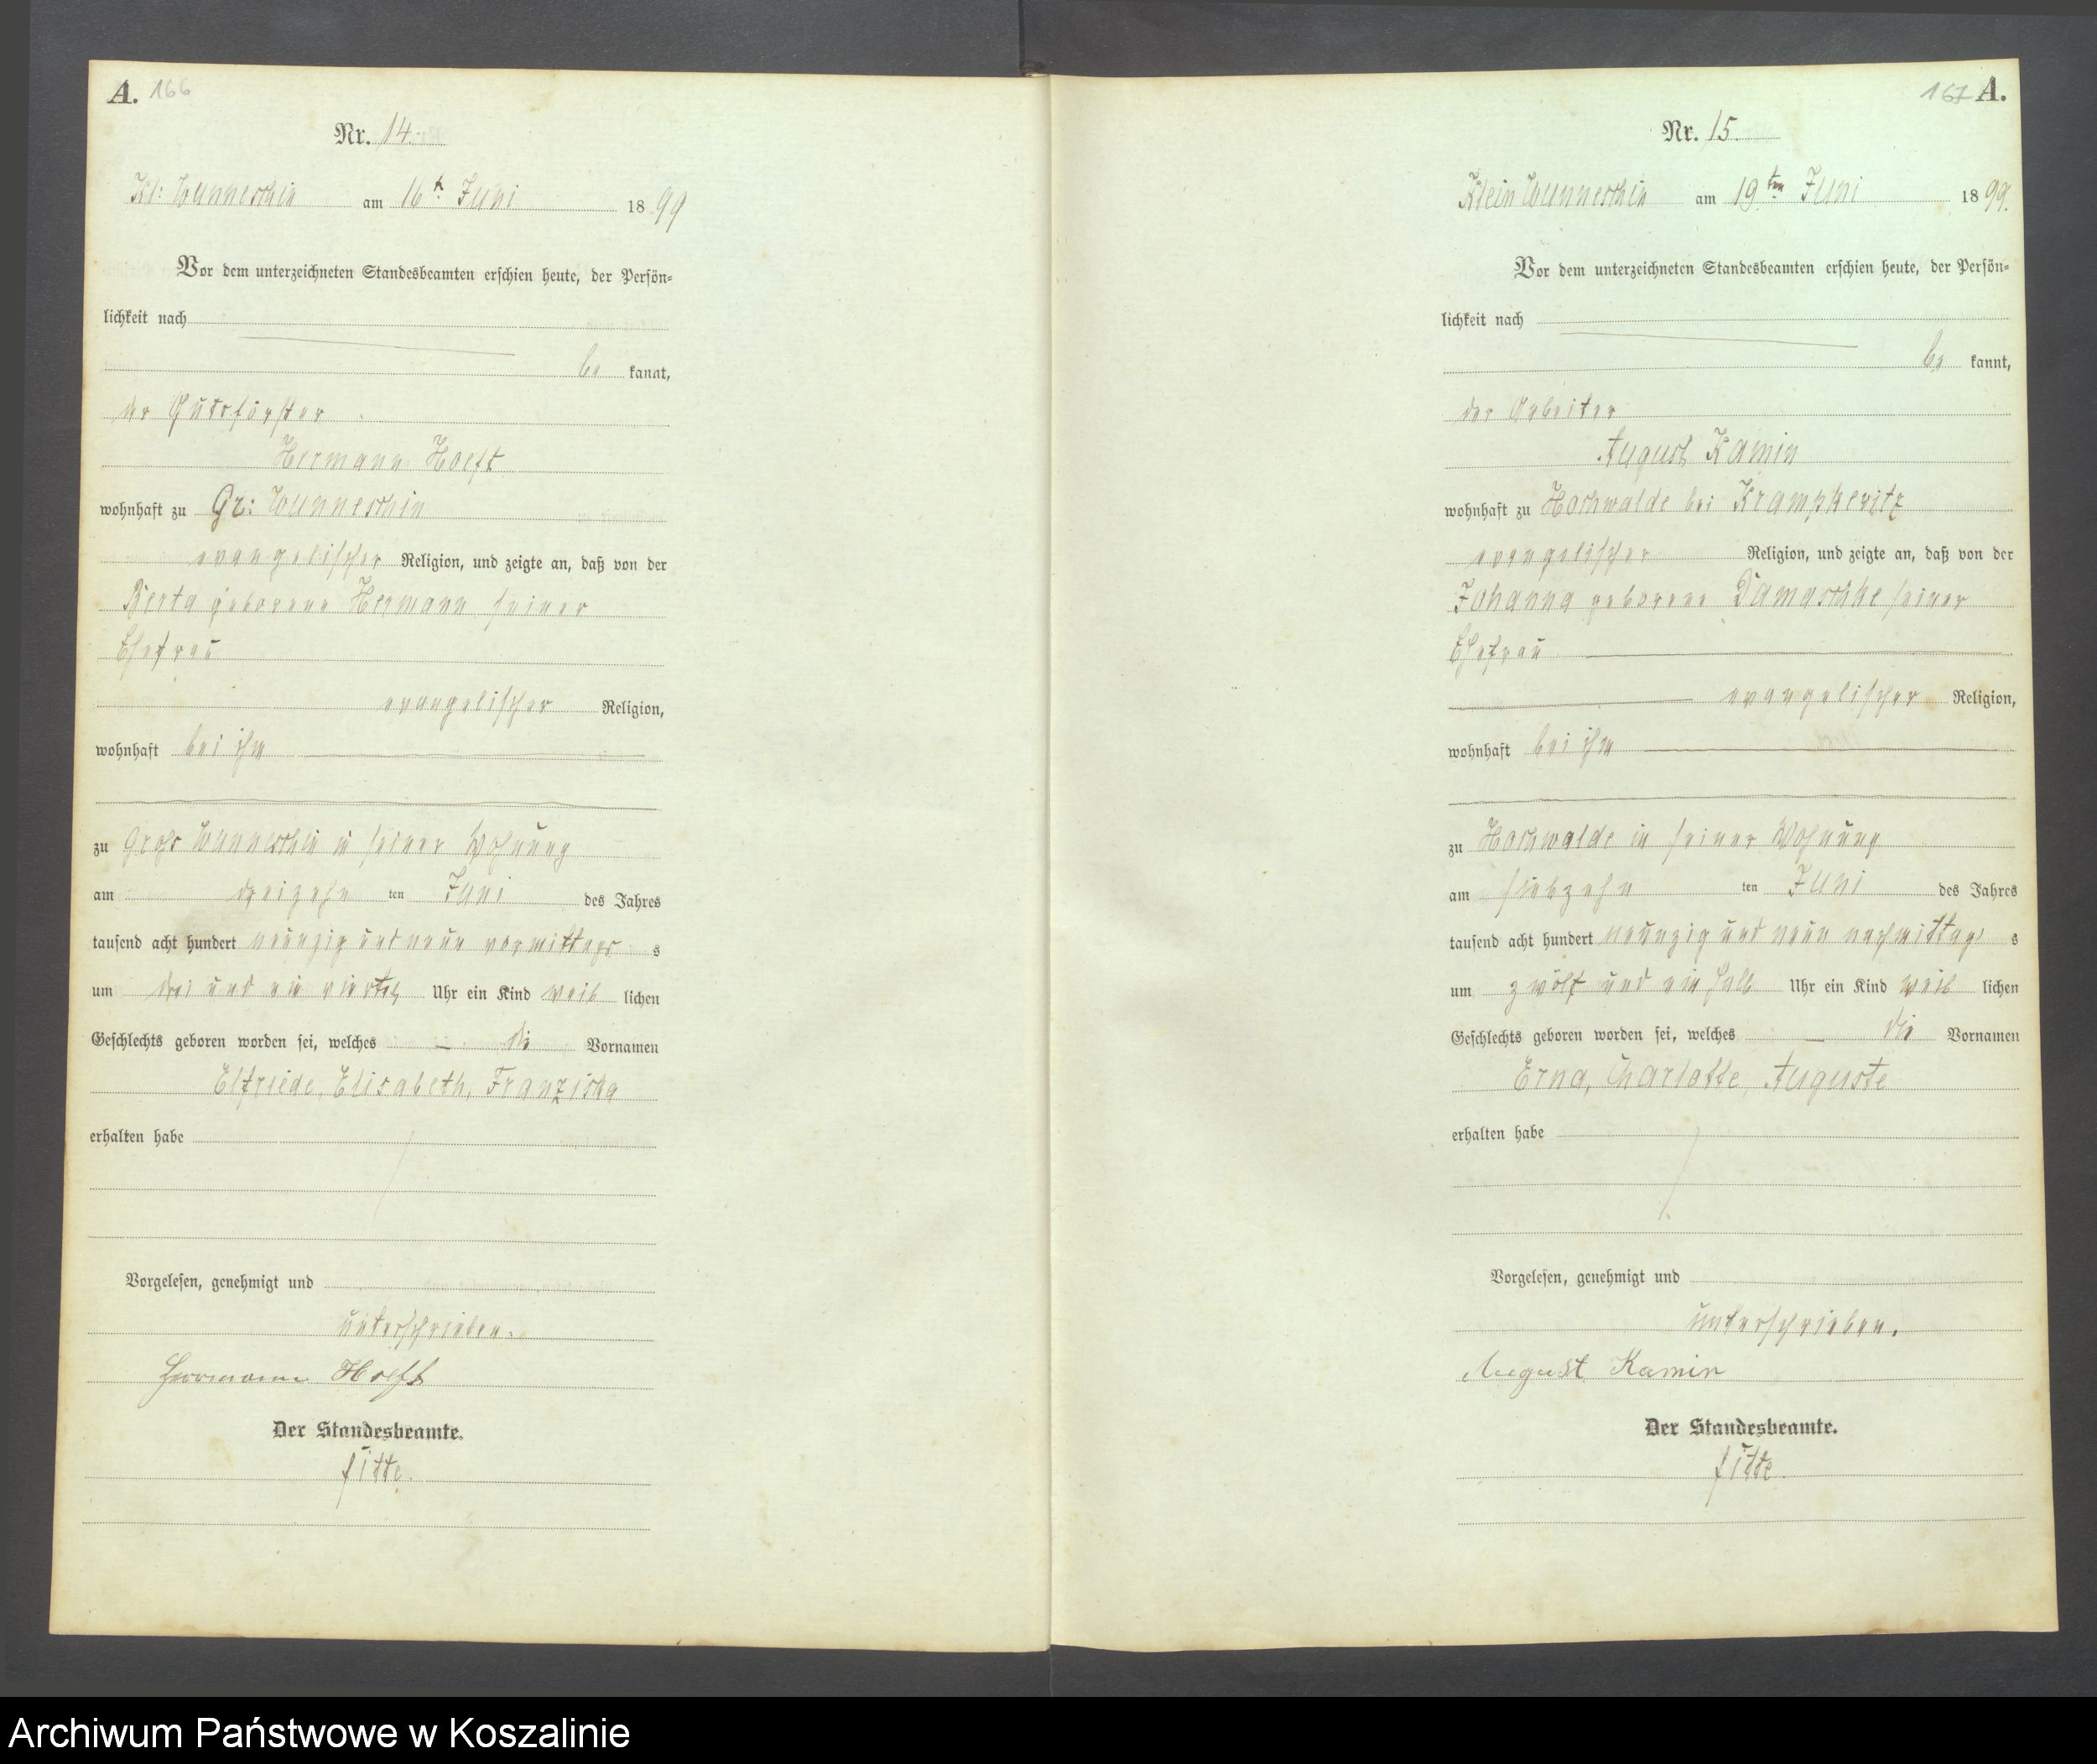 A. 166
Nr. 14.
Kl: Wunneschin am 16t. Juni 1899
Vor dem unterzeichneten Standesbeamten erschien heute, der Persön-
lichkeit nach
be kannt,
der Gutsförster
Hermann Hoeft
wohnhaft zu Gr: Wunneschin
evangelischer Religion, und zeigte an, daß von der
Berta geborene Hermann seiner
Ehefrau
evangelischer Religion,
wohnhaft bei ihm
zu Gross Wunneschin in seiner Wohnung
am dreizehn ten Juni des Jahres
tausend acht hundert neunzig und neun vormittags s
um drei und ein viertel Uhr ein Kind weib lichen
Geschlechts geboren worden sei, welches — die Vornamen
Elfriede, Elisabeth, Franziska
erhalten habe
Vorgelesen, genehmigt und
unterschrieben.
Herrmann Hoeft
Der Standesbeamte.
Fitte.
167 A.
Nr. 15.
Klein Wunneschin am 19ten Juni 1899.
Vor dem unterzeichneten Standesbeamten erschien heute, der Persön-
lichkeit nach
be kannt,
der Arbeiter
August Kamin
wohnhaft zu Hochwalde bei Krampkewitz
evangelischer Religion, und zeigte an, daß von der
Johanna geborene Damaschke seiner
Ehefrau
evangelischer Religion,
wohnhaft bei ihm
zu Hochwalde in seiner Wohnung
am siebzehn ten Juni des Jahres
tausend acht hundert neunzig und neun nachmittag s
um zwölf und ein halb Uhr ein Kind weib lichen
Geschlechts geboren worden sei, welches — die Vornamen
Erna, Charlotte, Auguste
erhalten habe
Vorgelesen, genehmigt und
unterschrieben.
August Kamin
Der Standesbeamte.
Fitte.
Archiwum Państwowe w Koszalinie